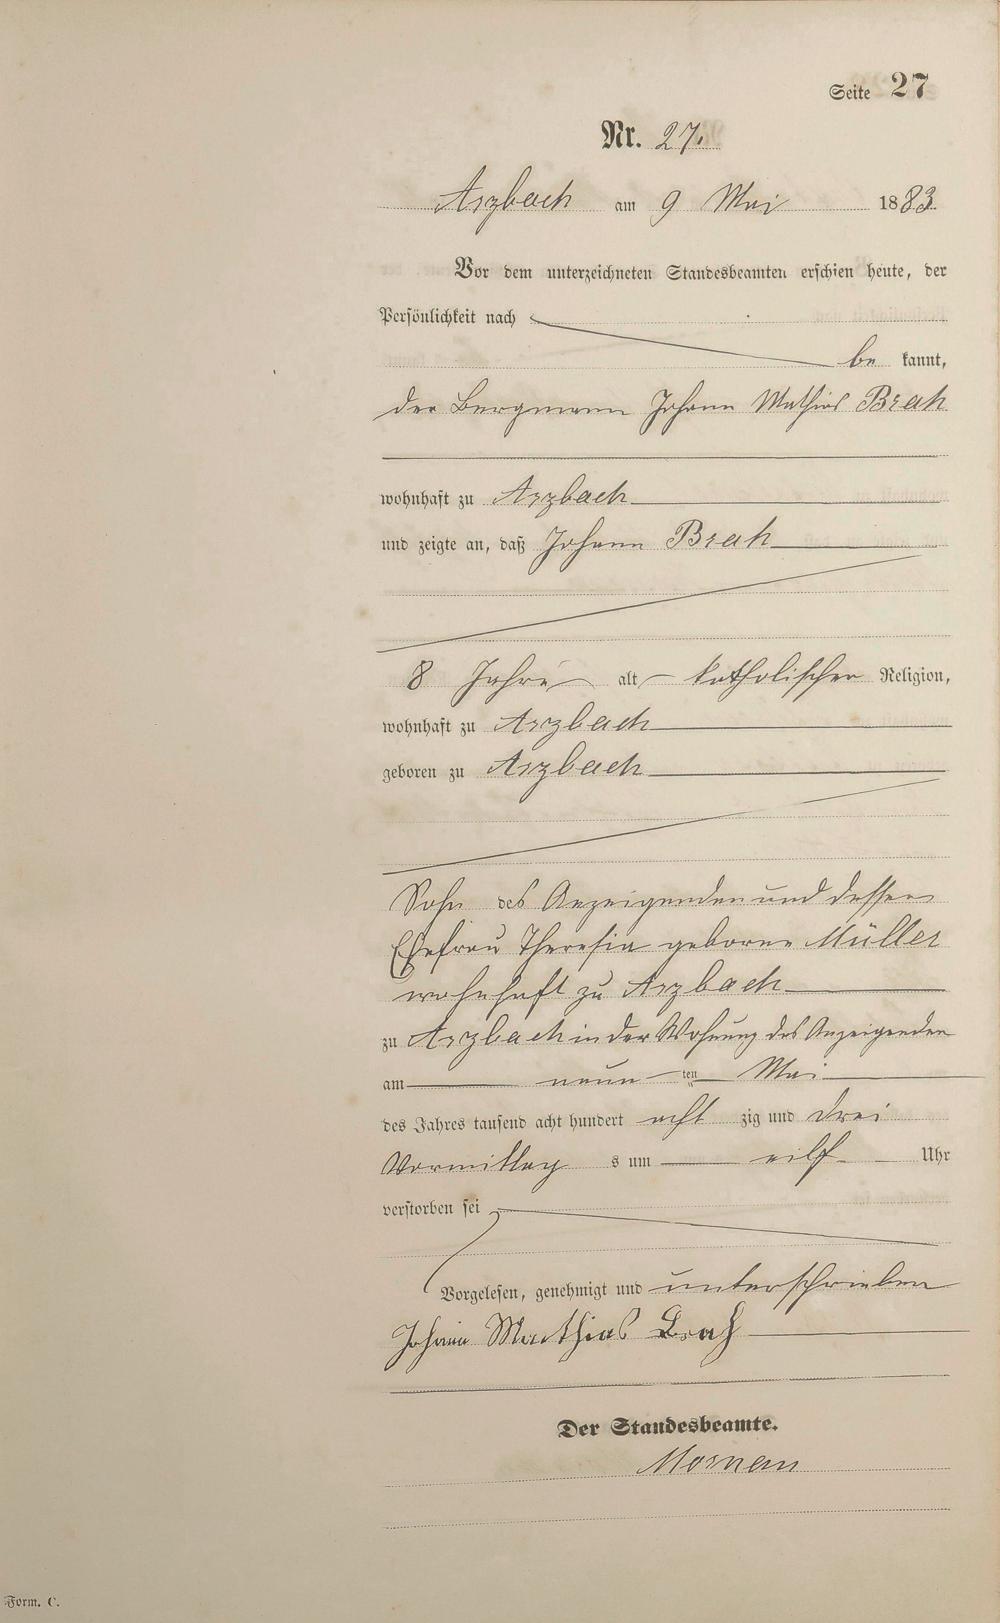 Seite 27
Nr. 27.
Arzbach am 9 Mai 1883.
Vor dem unterzeichneten Standesbeamten erschien heute, der
Persönlichkeit nach
be kannt,
der Bergmann Johann Mathias Brah
wohnhaft zu Arzbach
und zeigte an, daß Johann Brah
8 Jahre alt katholischer Religion,
wohnhaft zu Arzbach
geboren zu Arzbach
Sohn des Anzeigenden und dessen
Ehefrau Theresia geborne Müller
wohnhaft zu Arzbach
zu Arzbach in der Wohnung des Anzeigenden
am neun ten Mai
des Jahres tausend acht hundert acht zig und drei
Vormittag s um eilf Uhr
verstorben sei
Vorgelesen, genehmigt und unterschrieben
Johann Matthias Brah
Der Standesbeamte.
Form. C.